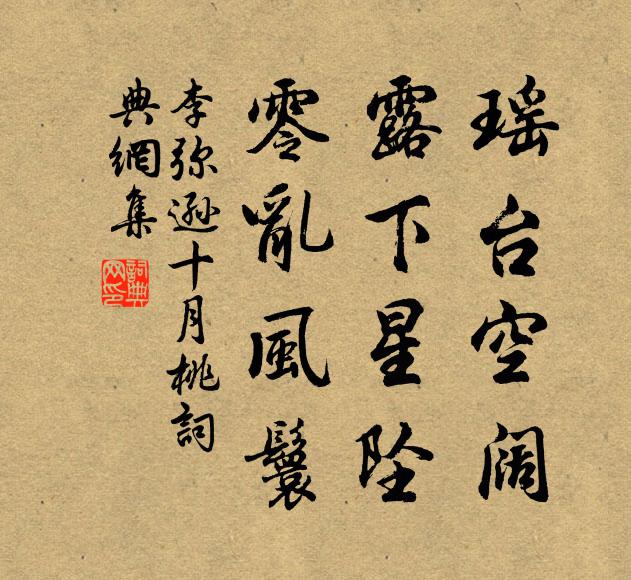 瑶台空阔
露下星坠
零亂風鬟
李弥遜十月桃詞
典網集
詞典网印